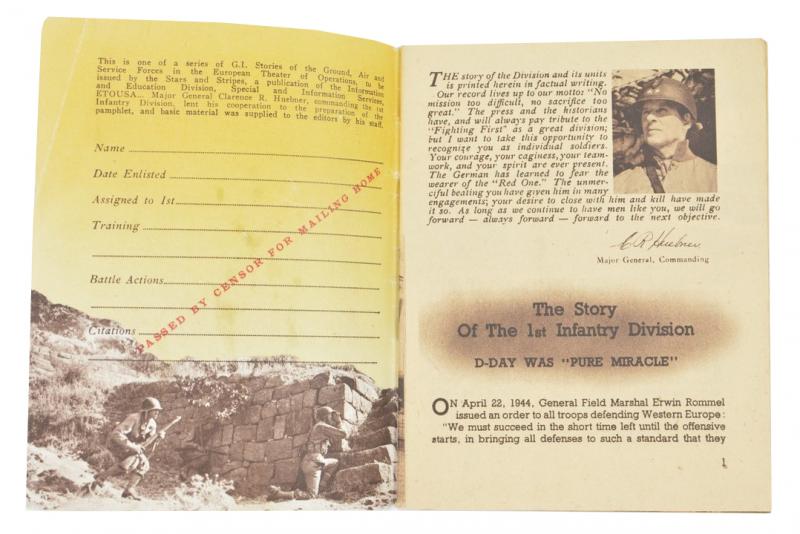 This is one of a series of G.I. Stories of the Ground, Air and
Service Forces in the European Theater of Operations, to be
issued by the Stars and Stripes, a publication of the Information
and Education Division, Special and Information Services,
ETOUSA... Major General Clarence R. Huebner, commanding the 1st
Infantry Division, lent his cooperation to the preparation of the
pamphlet, and basic material was supplied to the editors by his staff.
Name
Date Enlisted
Assigned to 1st
Training
Battle Actions
Citations
PASSED BY CENSOR FOR MAILING HOME
THE story of the Division and its units
is printed herein in factual writing.
Our record lives up to our motto: "No
mission too difficult, no sacrifice too
great." The press and the historians
have, and will always pay tribute to the
"Fighting First" as a great division;
but I want to take this opportunity to
recognize you as individual soldiers.
Your courage, your caginess, your team-
work, and your spirit are ever present.
The German has learned to fear the
wearer of the "Red One." The unmer-
ciful beating you have given him in many
engagements; your desire to close with him and kill have made
it so. As long as we continue to have men like you, we will go
forward — always forward — forward to the next objective.
C R Huebner
Major General, Commanding
The Story
Of The 1st Infantry Division
D-DAY WAS "PURE MIRACLE"
ON April 22, 1944, General Field Marshal Erwin Rommel
issued an order to all troops defending Western Europe:
"We must succeed in the short time left until the offensive
starts, in bringing all defenses to such a standard that they
1